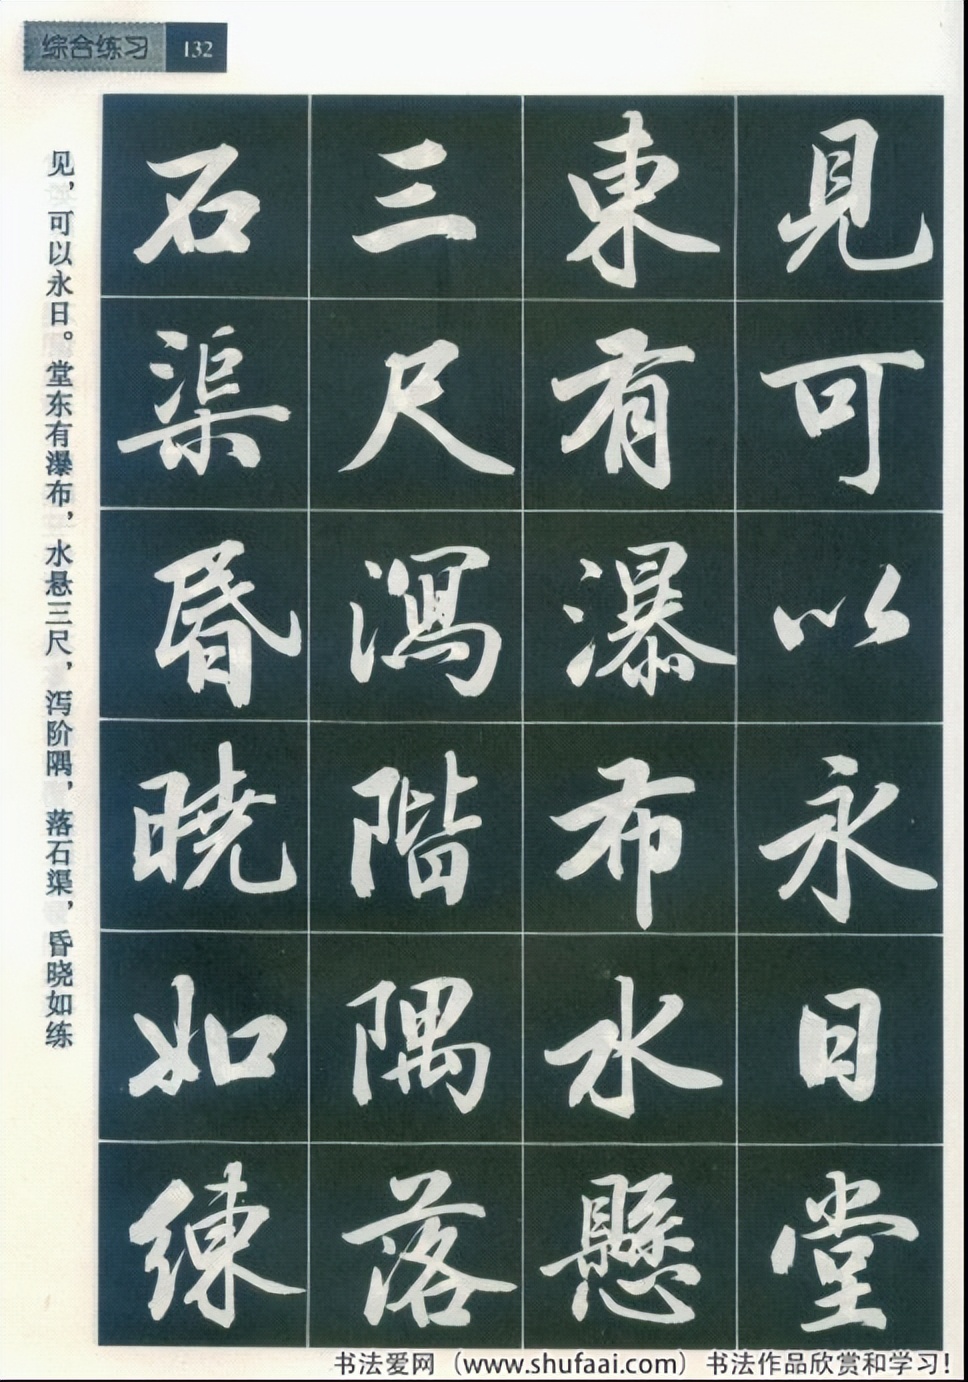 综合练习 132
見可以永日堂
東有瀑布水懸
三尺瀉階隅落
石渠昏曉如練
见，可以永日。堂东有瀑布，水悬三尺，泻阶隅，落石渠，昏晓如练
书法爱网（www.shufaai.com）书法作品欣赏和学习！